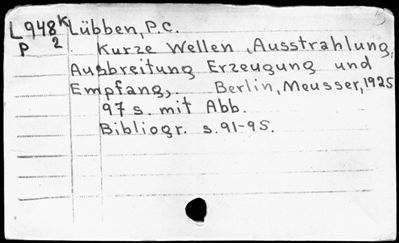 L948K Lübben, P.C.
P 2 Kurze Wellen, Ausstrahlung,
Ausbreitung Erzeugung und
Empfang, Berlin, Meusser, 1925
97 s. mit Abb.
Bibliogr. s. 91-95.